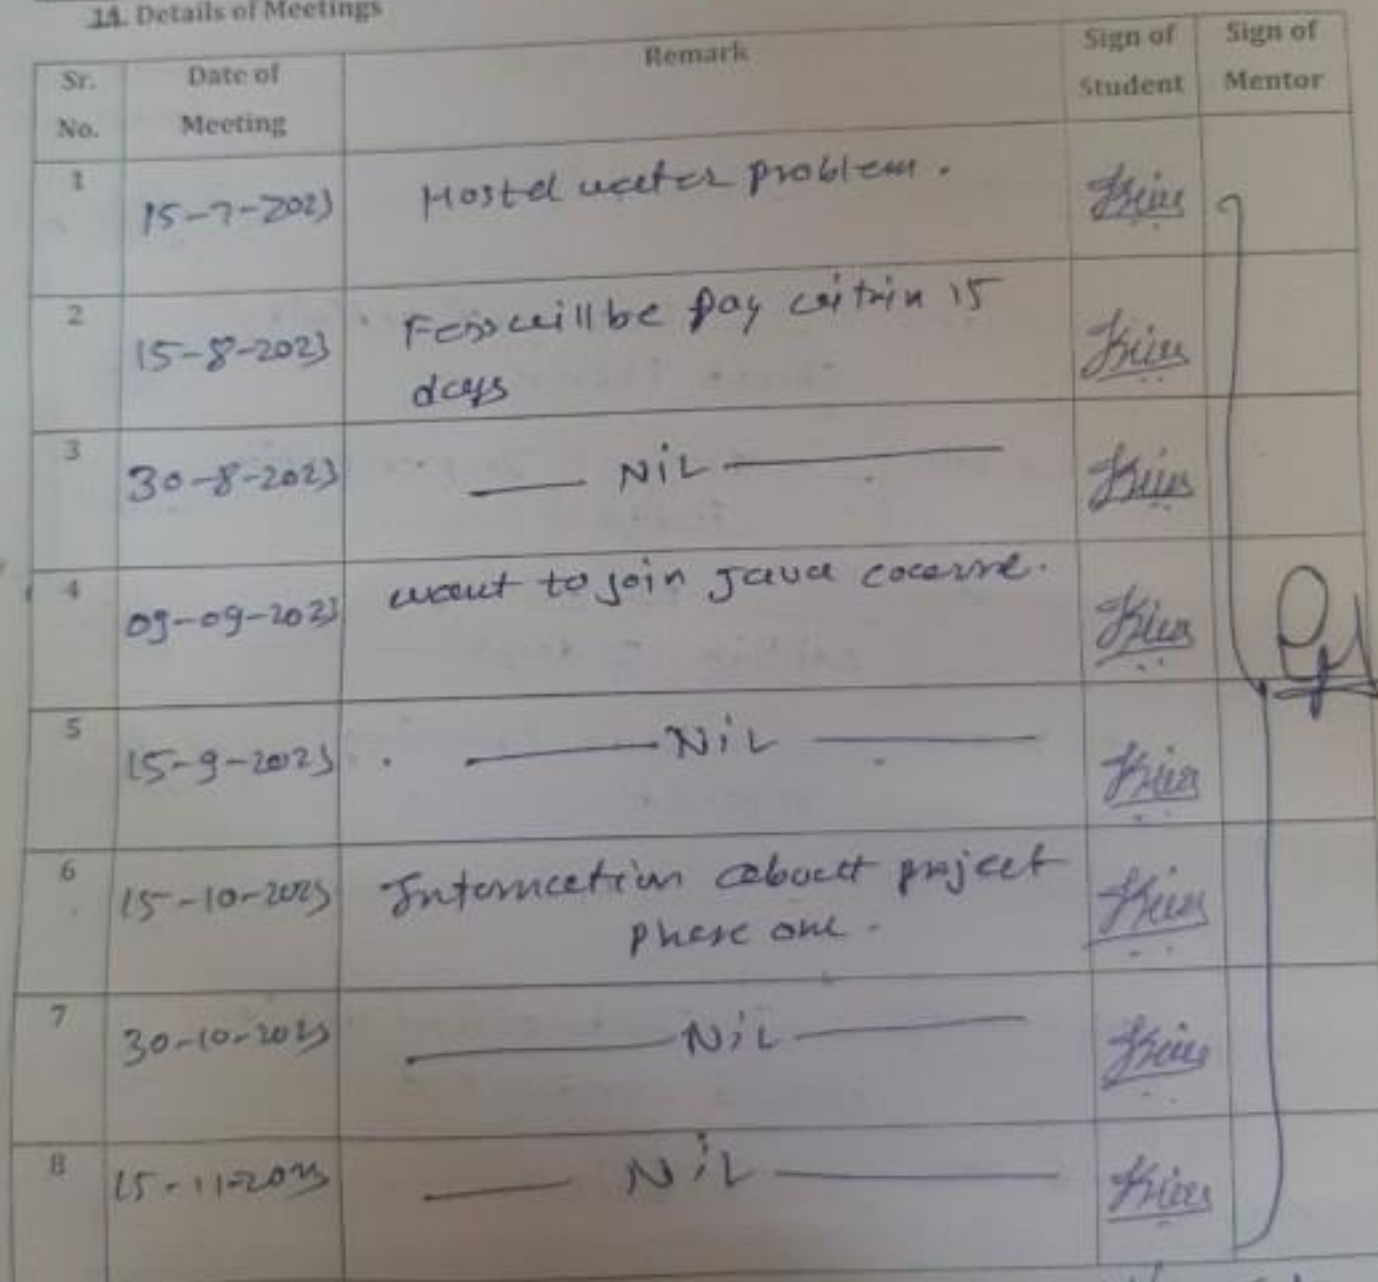 14. Details of Meetings
Sr. No. Date of Meeting Remark Sign of Student Sign of Mentor
1 15-7-2023 Hostel water problem.
2 15-8-2023 Fess will be pay within 15
days
3 30-8-2023 — NiL —
4 09-09-2023 want to join Java cocerne.
5 15-9-2023 — NiL —
6 15-10-2023 Information about project
phase one.
7 30-10-2023 — NiL —
8 15-11-2023 — NiL —